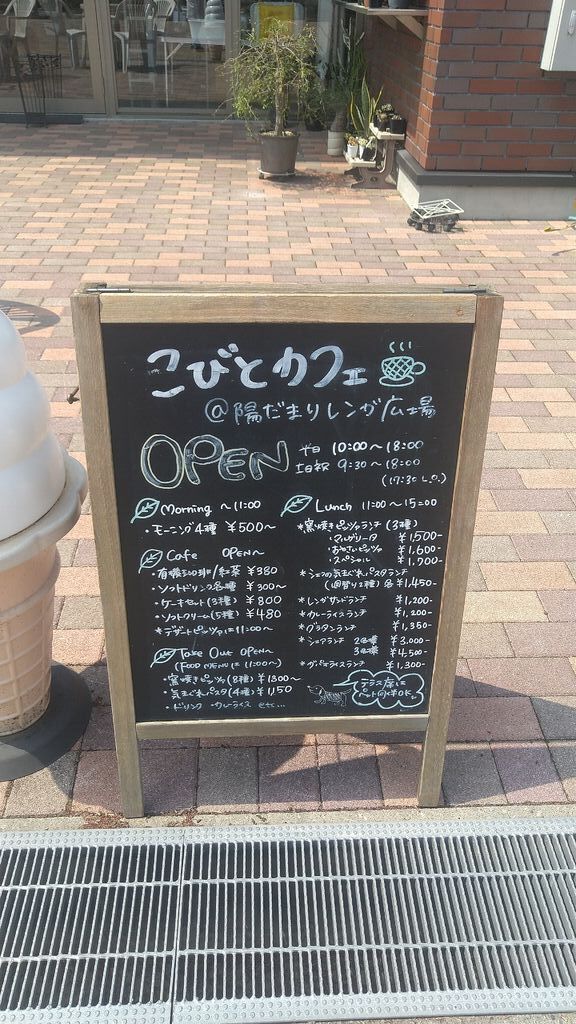 こびとカフェ
@陽だまりレンガ広場
OPEN
平日 10:00〜18:00
土日祝 9:30〜18:00
(17:30 L.O.)
Morning 〜11:00
・モーニング4種 ¥500〜
Cafe OPEN〜
・有機珈琲/紅茶 ¥380
・ソフトドリンク各種 ¥300〜
・ケーキセット(3種) ¥800
・ソフトクリーム(5種) ¥480
*デザートピッツァは11:00〜
Take Out OPEN〜
(FOOD MENUは11:00〜)
・窯焼きピッツァ(8種) ¥1300〜
・気まぐれパスタ(4種) ¥1,150
・ドリンク カレーライス etc...
Lunch 11:00〜15:00
*窯焼きピッツァランチ(3種)
・マルゲリータ ¥1,500-
・おやさいピッツァ ¥1,600-
・スペシャル ¥1,700-
*シェフの気まぐれパスタランチ
(週替り2種) 各¥1,450-
*レンガサンドランチ ¥1,200-
*カレーライスランチ ¥1,200-
*グラタンランチ ¥1,350-
*シェアランチ 2名様 ¥3,000-
3名様 ¥4,500-
¥1,300-
テラス席は
ペット同伴OK